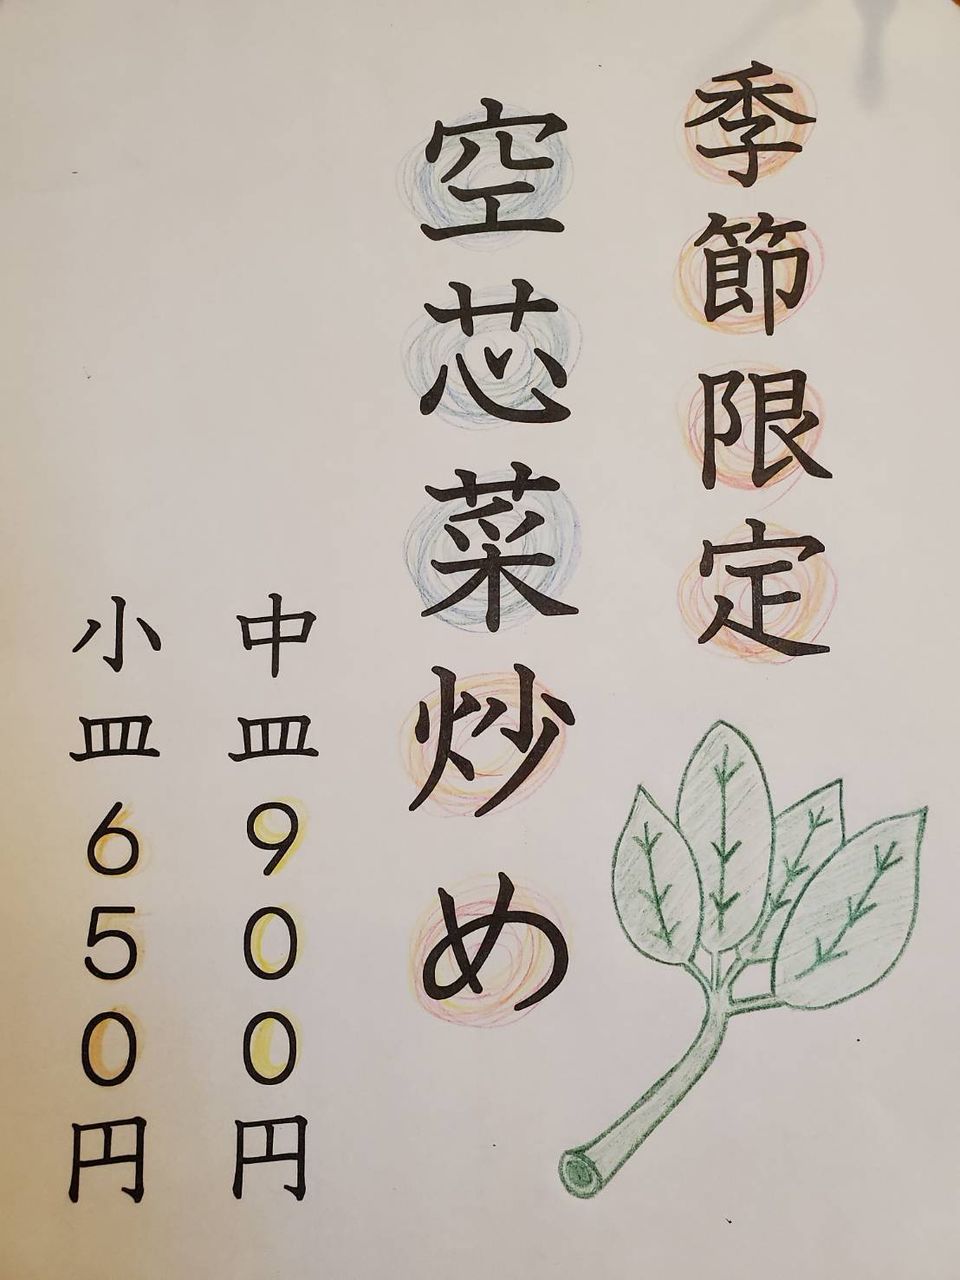 季節限定
空芯菜炒め
中皿900円
小皿650円